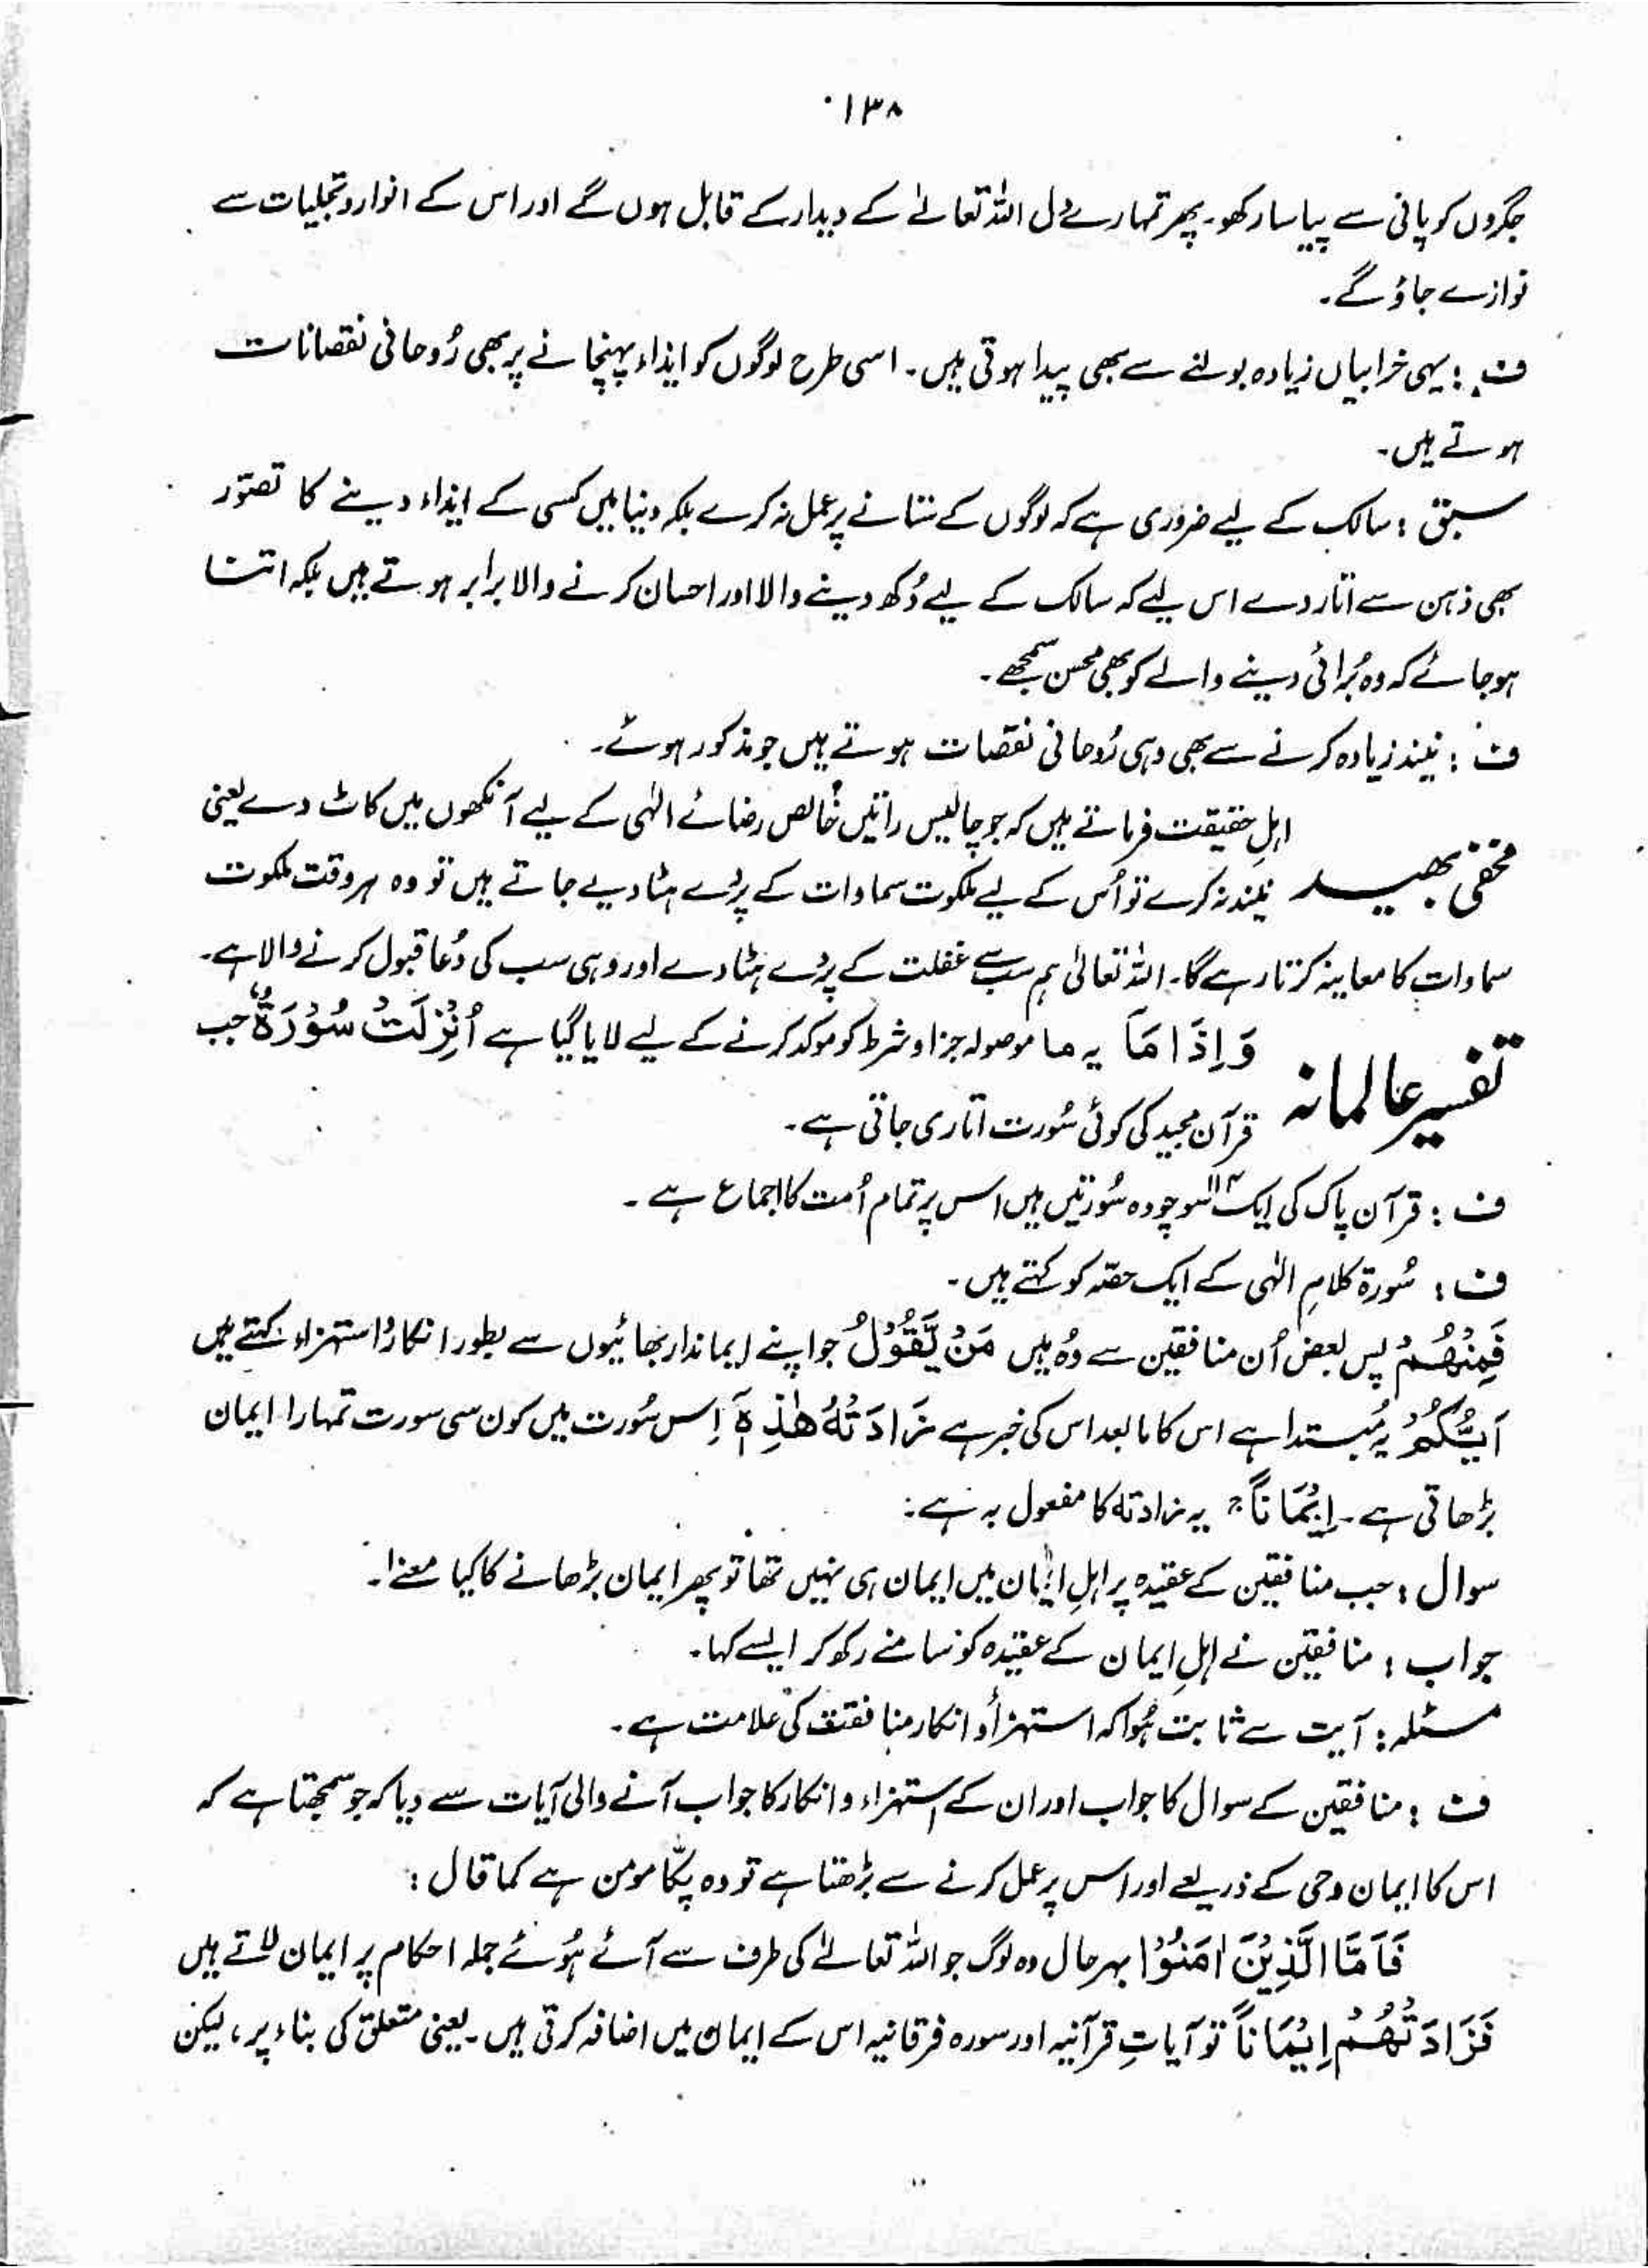 ۱۳۸
جگروں کو پانی سے پیاسا رکھو۔ پھر تمہارے دل اللہ تعالےٰ کے دیدار کے قابل ہوں گے اور اس کے انوار و تجلیات سے
نوازے جاؤ گے۔
ف : یہی خرابیاں زیادہ بولنے سے بھی پیدا ہوتی ہیں۔ اسی طرح لوگوں کو ایذاء پہنچانے پر بھی رُوحانی نقصانات
ہوتے ہیں۔
سبق : سالک کے لیے ضروری ہے کہ لوگوں کے ستانے پر عمل نہ کرے بلکہ دنیا میں کسی کے ایذاء دینے کا تصوّر
بھی ذہن سے اتار دے اس لیے کہ سالک کے لیے دُکھ دینے والا اور احسان کرنے والا برابر ہوتے ہیں بلکہ اتنا
ہو جائے کہ وہ بُرائی دینے والے کو بھی محسن سمجھے۔
ف : نیند زیادہ کرنے سے بھی وہی رُوحانی نقصات ہوتے ہیں جو مذکور ہوئے۔
اہلِ حقیقت فرماتے ہیں کہ جو چالیس راتیں خالص رضائے الٰہی کے لیے آنکھوں میں کاٹ دے یعنی
مخفی بھید نیند نہ کرے تو اُس کے لیے ملکوت سماوات کے پردے ہٹا دیے جاتے ہیں تو وہ ہر وقت ملکوت
سماوات کا معاینہ کرتا رہے گا۔ اللہ تعالیٰ ہم سب سے غفلت کے پردے ہٹا دے اور وہی سب کی دُعا قبول کرنے والا ہے۔
تفسیر عالمانہ وَ اِذَا مَآ یہ ما موصولہ جزا و شرط کو موکد کرنے کے لیے لایا گیا ہے اُنْزِلَتْ سُوْرَةٌ جب
قرآن مجید کی کوئی سُورت اتاری جاتی ہے۔
ف : قرآن پاک کی ایک سو چودہ ۱۱۴ سُورتیں ہیں اس پر تمام اُمت کا اجماع ہے۔
ف : سُورة کلامِ الٰہی کے ایک حصّہ کو کہتے ہیں۔
فَمِنْهُمْ پس بعض اُن منافقین سے وُہ ہیں مَنْ یَّقُوْلُ جو اپنے ایماندار بھائیوں سے بطور انکار و استہزاء کہتے ہیں
اَیُّکُمْ یہ مُبتدا ہے اس کا مابعد اس کی خبر ہے زَادَتْهُ هٰذِهٖۤ اِس سُورت میں کون سی سورت تمہارا ایمان
بڑھاتی ہے۔ اِیْمَانًا ج یہ زادتہ کا مفعول بہ ہے:
سوال : جب منافقین کے عقیدہ پر اہلِ ایمان میں ایمان ہی نہیں تھا تو پھر ایمان بڑھانے کا کیا معنےٰ۔
جواب : منافقین نے اہلِ ایمان کے عقیدہ کو سامنے رکھ کر ایسے کہا۔
مسئلہ : آیت سے ثابت ہُوا کہ استہزأ و انکار منافقت کی علامت ہے۔
ف : منافقین کے سوال کا جواب اور ان کے استہزاء و انکار کا جواب آنے والی آیات سے دیا کہ جو سمجھتا ہے کہ
اس کا ایمان وحی کے ذریعے اور اس پر عمل کرنے سے بڑھتا ہے تو وہ پکّا مومن ہے کما قال :
فَاَمَّا الَّذِیْنَ اٰمَنُوْا بہرحال وہ لوگ جو اللہ تعالےٰ کی طرف سے آئے ہُوئے جملہ احکام پر ایمان لاتے ہیں
فَزَادَتْهُمْ اِیْمَانًا تو آیاتِ قرآنیہ اور سورہ فرقانیہ اس کے ایمان میں اضافہ کرتی ہیں۔ یعنی متعلق کی بناء پر، لیکن